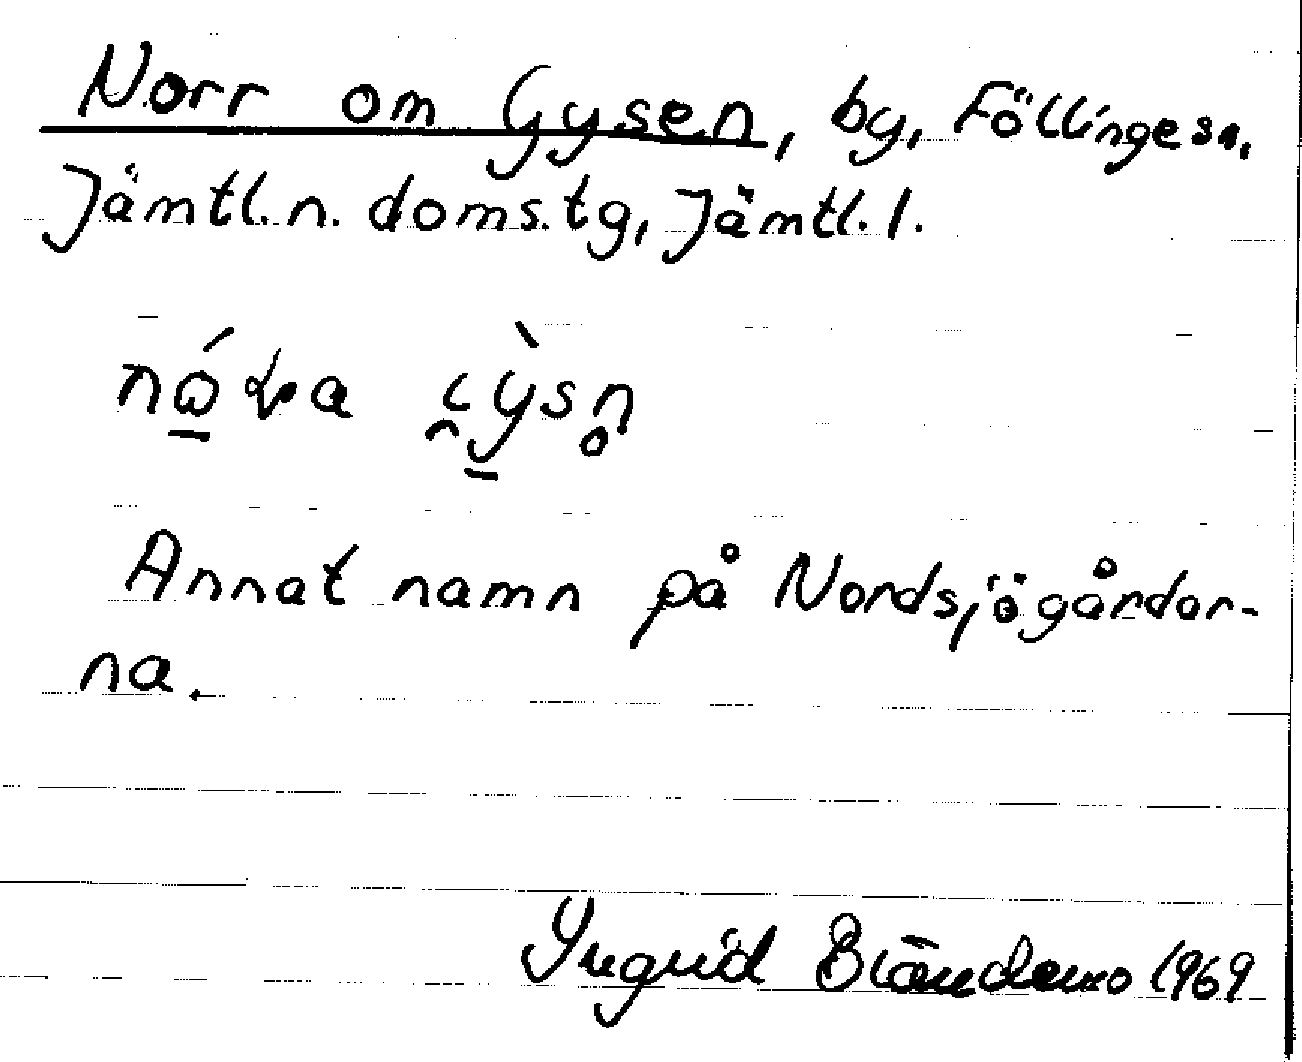 Norr om Gysen, by, Föllinge sn,
Jämtl. n. doms. tg, Jämtl. l.
Annat namn på Nordsjögårdar-
na.
Ingrid Brändemo 1969